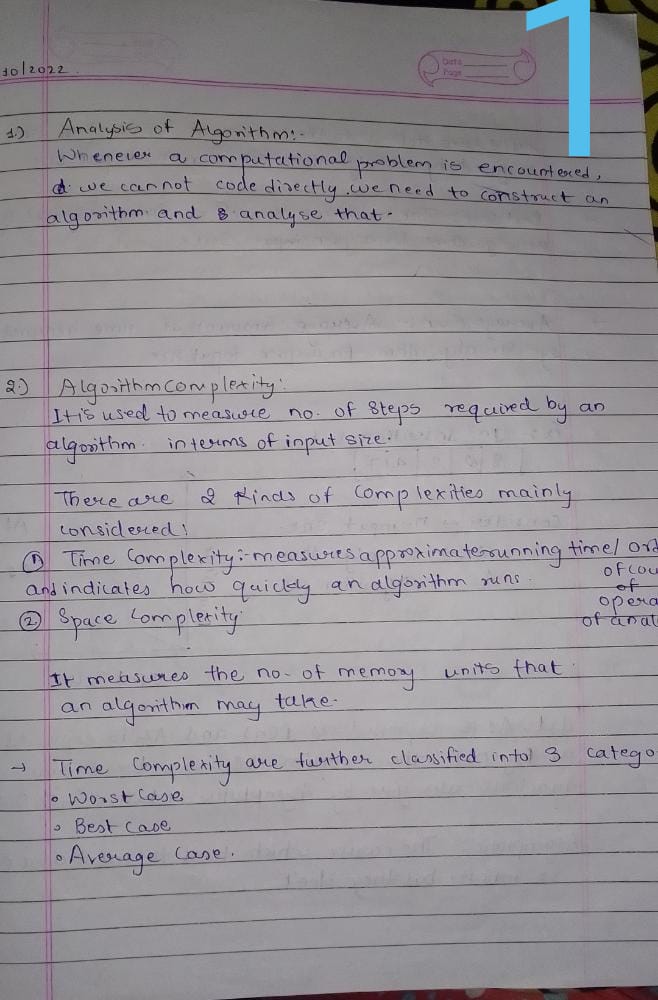 1
10/2022
Date
Page
1.) Analysis of Algorithm:-
Whenever a computational problem is encountered,
we cannot code directly. we need to construct an
algorithm and analyse that.
2.) Algorithm complexity:
It is used to measure no. of steps required by an
algorithm in terms of input size.
There are 2 kinds of complexities mainly
considered:
① Time Complexity:- measures approximate running time/ ord
and indicates how quickly an algorithm runs. of cou
of
② Space Complexity: opera
of anal
It measures the no. of memory units that
an algorithm may take.
→ Time Complexity are further classified into 3 catego
• Worst case
• Best case
• Average case.